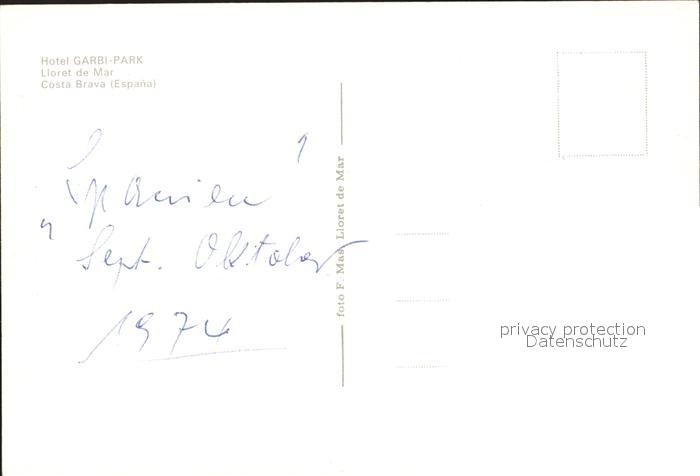 Hotel GARBI-PARK
Lloret de Mar
Costa Brava (España)
„Spanien"
Sept. Oktober
1974
foto F. Mas Lloret de Mar
privacy protection
Datenschutz